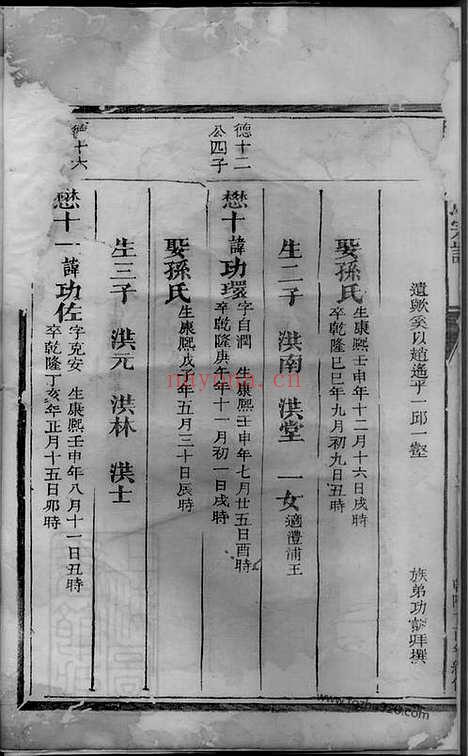 遺歟爰以趙逓乎一邱一壑
族弟功彭拜撰
娶孫氏 生康熙壬申年十二月十六日戌時
卒乾隆己巳年九月初九日丑時
生二子 洪南 洪堂 一女 適澧浦王
德十二
公四子
懋十 諱功環 字自潤 生康熙壬申年七月廿五日酉時
卒乾隆庚午年十一月初一日戌時
娶孫氏 生康熙戊子年五月三十日辰時
生三子 洪元 洪林 洪士
德十六
懋十一 諱功佐 字克安 生康熙壬申年八月十一日丑時
卒乾隆丁亥年正月十五日卯時